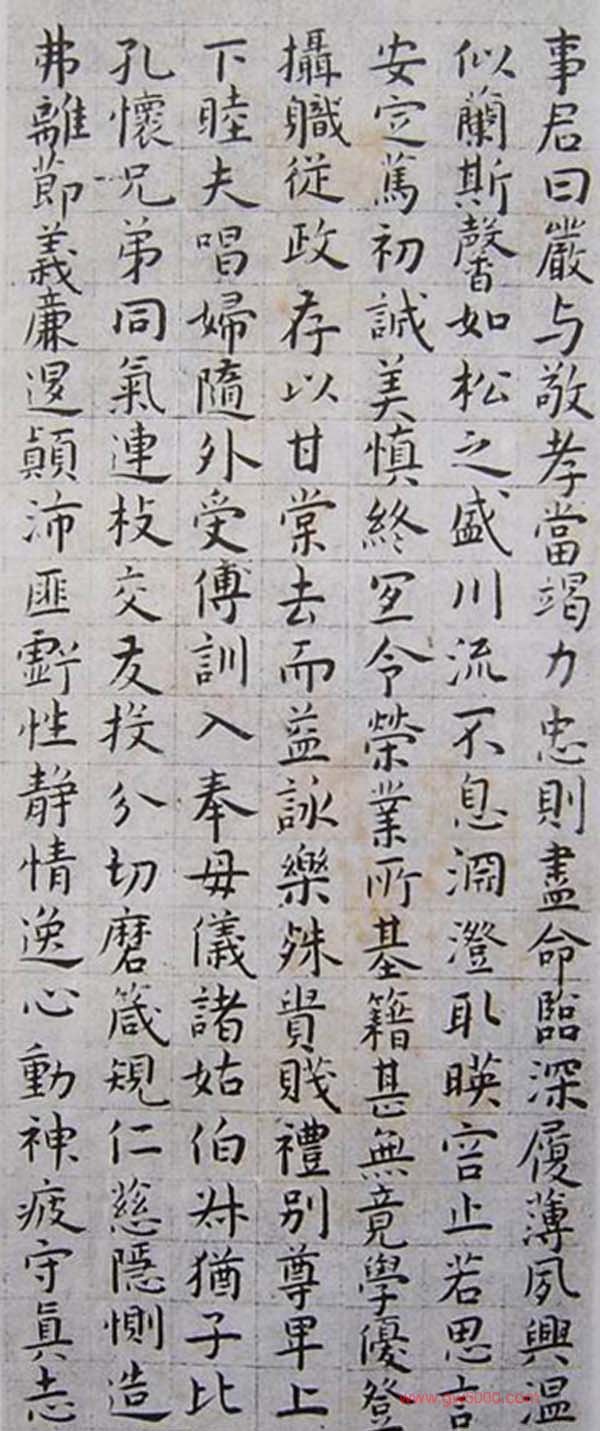 事君曰嚴与敬孝當竭力忠則盡命臨深履薄夙興温
似蘭斯馨如松之盛川流不息淵澄取暎容止若思言
安定篤初誠美慎終宜令榮業所基籍甚無竟學優登
攝職從政存以甘棠去而益詠樂殊貴賤禮別尊卑上
下睦夫唱婦隨外受傅訓入奉母儀諸姑伯叔猶子比
孔懷兄弟同氣連枝交友投分切磨箴規仁慈隱惻造
弗離節義廉退顛沛匪虧性静情逸心動神疲守真志